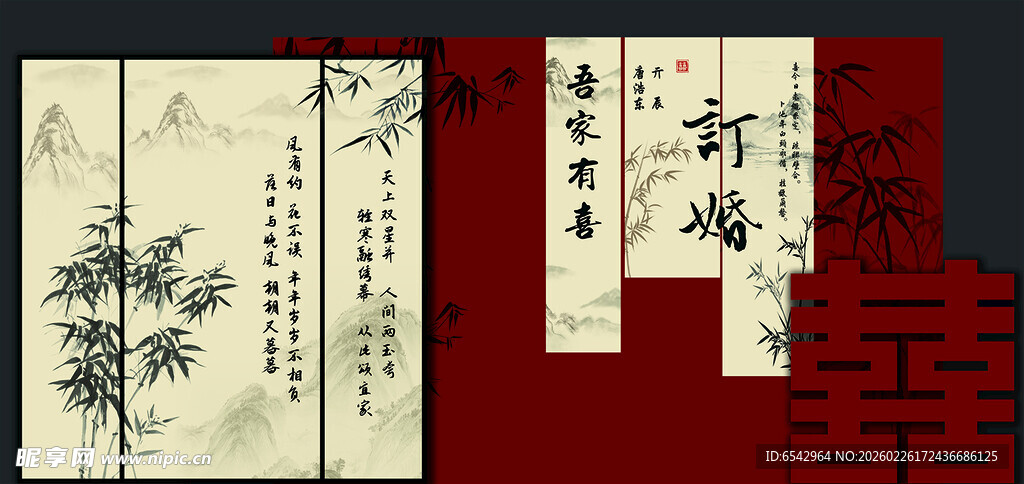 风有约 花不误 年年岁岁不相负
落日与晚风 朝朝又暮暮
天上双星并 人间两玉夸
轻寒融绣幕 从此颂宜家
吾家有喜
亓辰
唐浩东
囍
訂婚
喜今日赤绳系定，珠联璧合。
卜他年白头永偕，桂馥兰馨。
囍
昵享网 www.nipic.cn
ID:6542964 NO:20260226172436686125